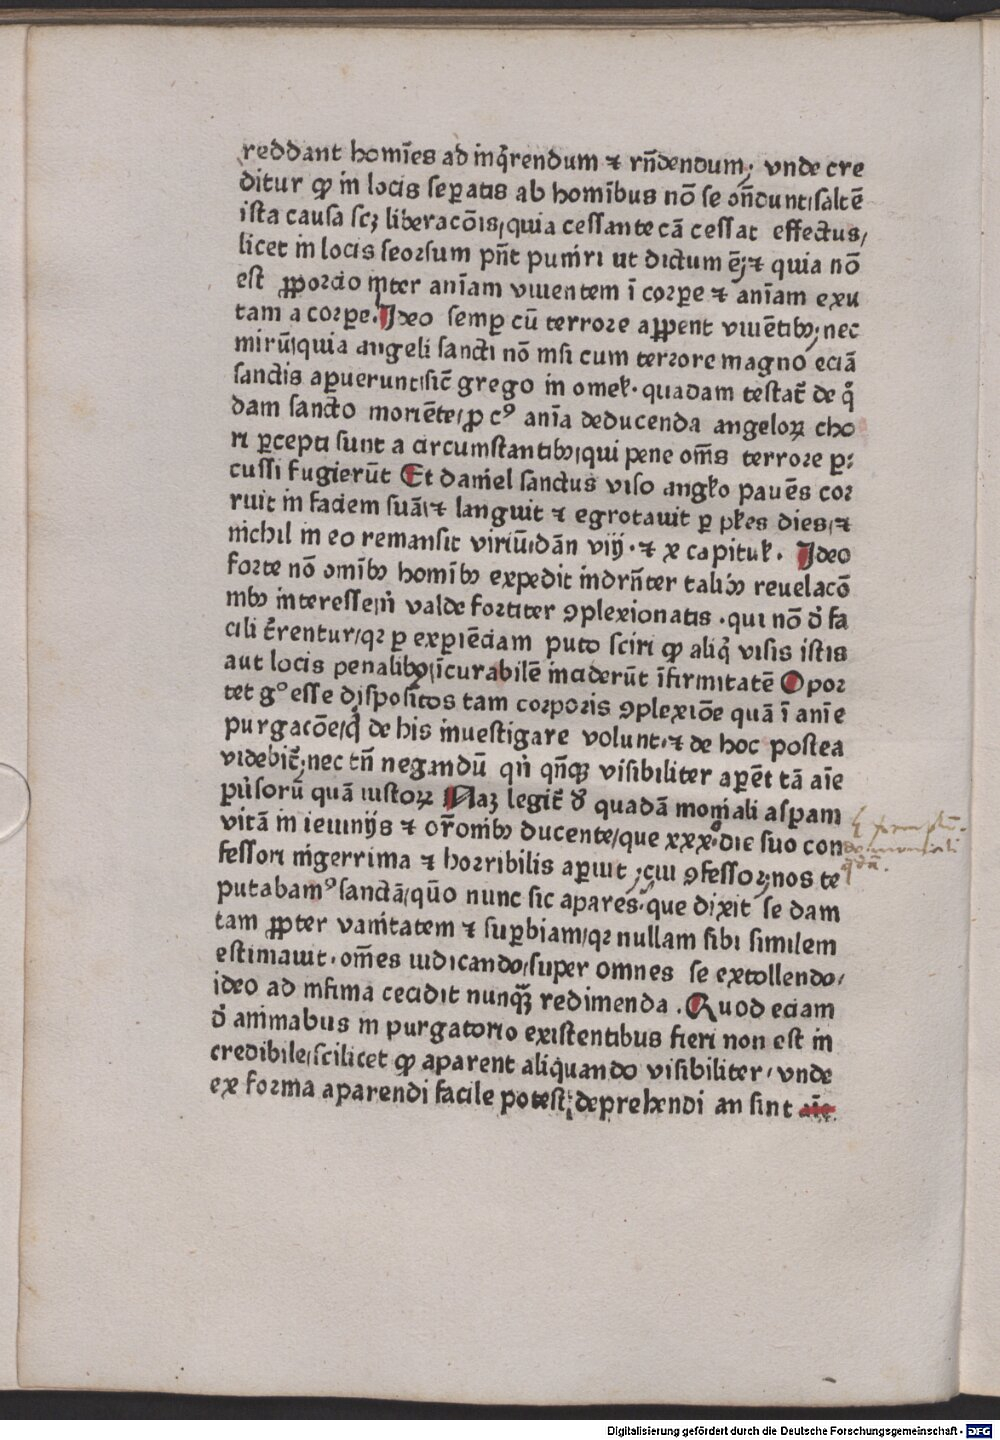 reddant homīes ad inq̄rendum ⁊ rn̄dendum; vnde cre
ditur ꝙ in locis seꝑatis ab homībus nō se on̄dunt/saltē
ista causa scꝫ liberacōis/quia cessante cā cessat effectus/
licet in locis seorsum pn̄t puniri ut dictum ē;⁊ quia nō
est ꝓporcio inter anīam viuentem ī corꝑe ⁊ anīam exu
tam a corꝑe. Ideo semꝑ cū terrore apꝑent viuētibꝫ; nec
mirū/quia angeli sancti nō nisi cum terrore magno eciā
sanctis aꝑuerunt/sic̄ grego in omel. quadam testat̄ de q̄
dam sancto moriēte/ꝓ cꝰ anīa deducenda angeloꝝ cho
ri ꝑcepti sunt a circumstantibꝫ/qui pene om̄s terrore ꝑ:
cussi fugierūt Et daniel sanctus viso angło pauēs cor
ruit in faciem suā/⁊ languit ⁊ egrotauit ꝑ płes dies/⁊
nichil in eo remansit viriū/dān viij. ⁊ x capituł. Ideo
forte nō omībꝫ homībꝫ expedit indrn̄ter talibꝫ reuelacō
nibꝫ interesse/ni̇ valde fortiter ꝯplexionatis. qui nō ðˀ fa
cili t̄rentur/qꝛ ꝑ exꝑiēciam puto sciri ꝙ aliq̄ visis istis
aut locis penalibꝫ/īcurabilē inciderūt īfirmitatē Opor
tet gᵒ esse disposītos tam corporis ꝯplexiōe quā ī anīe
purgacōe/q̄ de his inuestigare volunt/⁊ de hoc postea
videbit̄; nec tn̄ negandū qn̄ qn̄qꝫ visibiliter aꝑēt tā aīe
pu̇isorū quā iustoꝝ Naꝫ legit̄ ðˀ quadā moniali asꝑam
vitā in ieiunijs ⁊ or̄onibꝫ ducente/que xxxᵒ. die suo con
fessori nigerrima ⁊ horribilis aꝑuit ; cui ꝯfessor; nos te
putabamꝰ sanctā/quō nunc sic apares. que dixit se dam
tam ꝓpter vanitatem ⁊ suꝑbiam/qꝛ nullam sibi similem
estimauit. om̄es iudicando/super omnes se extollendo/
ideo ad infima cecidit nunqꝫ redimenda . Quod eciam
ðˀ animabus in purgatorio existentibus fieri non est in
credibile/scilicet ꝙ aparent aliquando visibiliter/ vnde
ex forma aparendi facile potest deprehendi an sint aīe